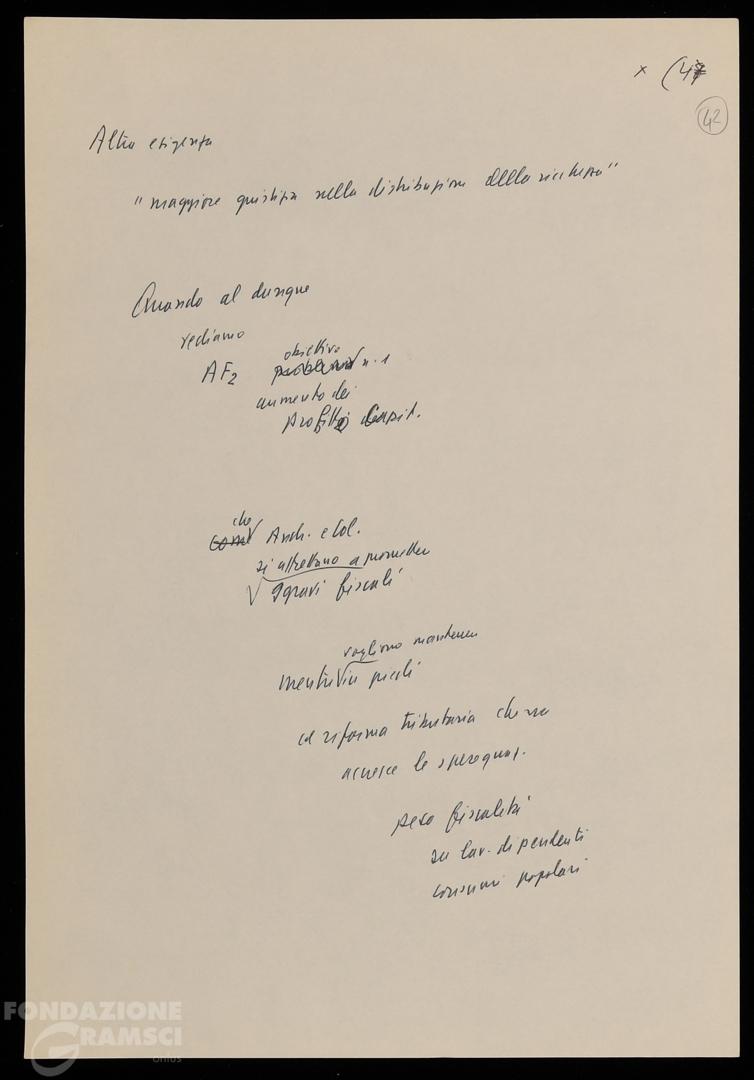 x (4
42
Altra esigenza
"maggiore giustizia nella distribuzione della ricchezza"
Quando al dunque
vediamo
obiettivo
AF2 problema n. 1
aumento dei
profitti capit.
che
come Andr. e Col.
si affrettano a promettere
sgravi fiscali
vogliono mantenere
mentre in piedi
la riforma tributaria che
accresce le sperequaz.
peso fiscalità
su lav. dipendenti
consumi popolari
FONDAZIONE
GRAMSCI
onlus